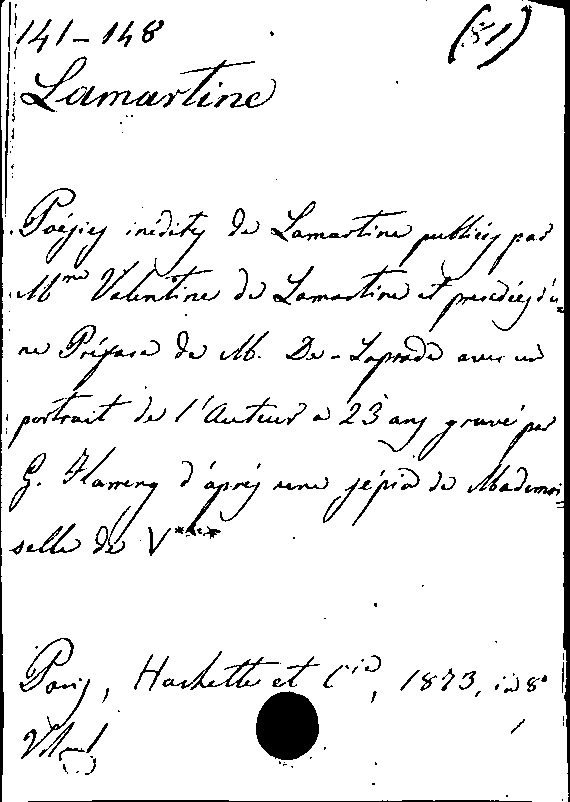 141-148 (81)
Lamartine
Poésies inédites de Lamartine publiées par
Mme Valentine de Lamartine et precedées d'u=
ne Préface de M. De-Laprade avec un
portrait de l'Auteur a 23 ans gravé par
G. Flameng d'après une sépia de Mademoi=
selle de V***
Paris, Hachette et Cie, 1873, in 8°
Vol. 1